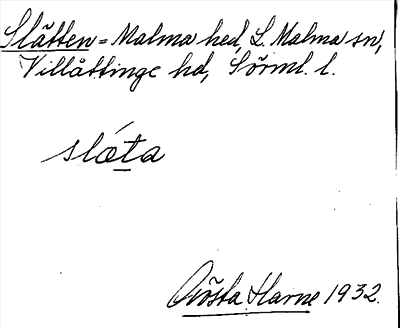 Slätten = Malma hed, L. Malma sn,
Villåttinge hd, Sörml. l.
slǽta
Gösta Harne 1932.